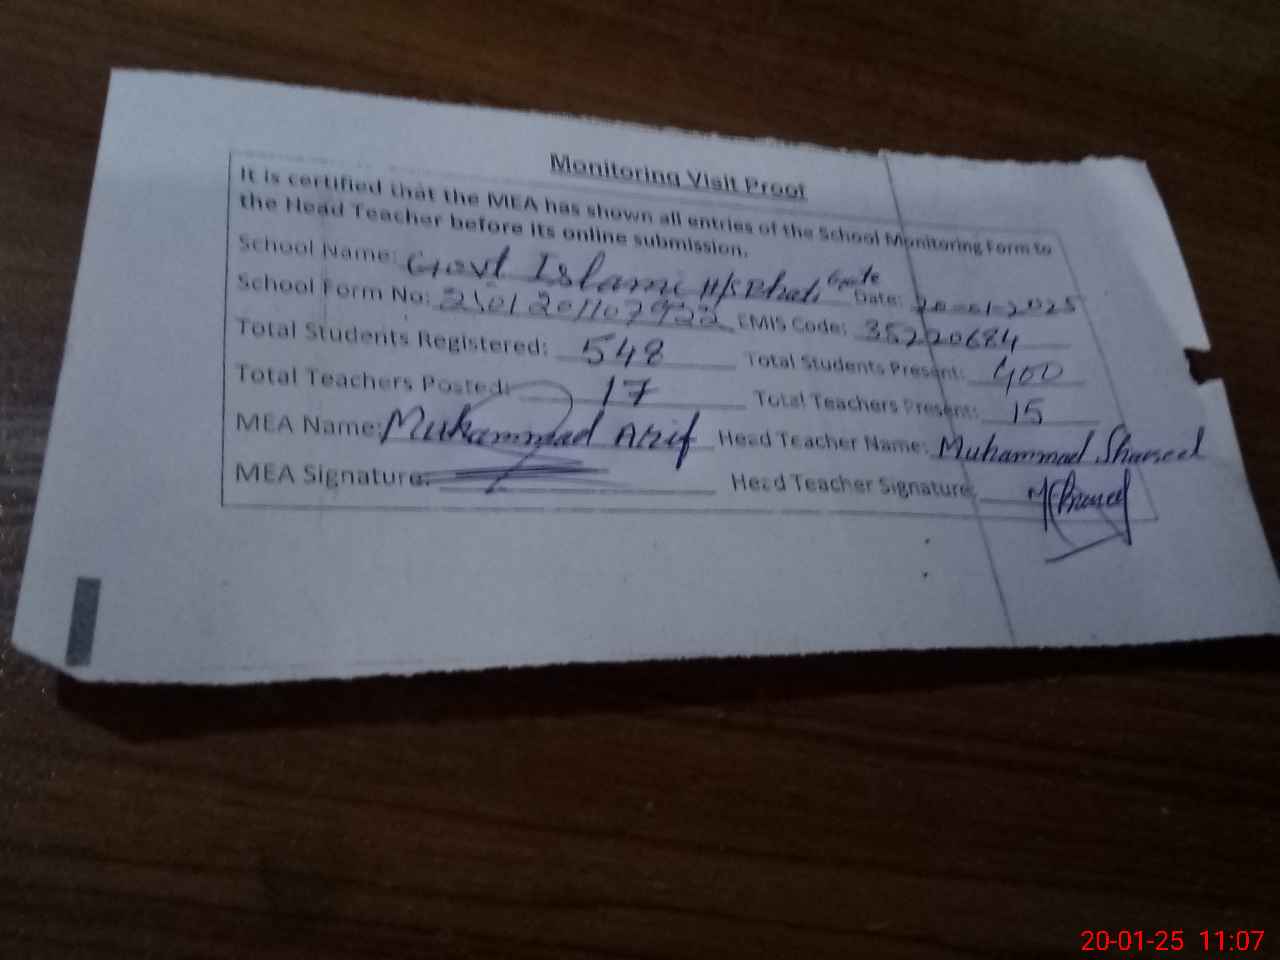 Monitoring Visit Proof
It is certified that the MEA has shown all entries of the School Monitoring Form to
the Head Teacher before its online submission.
School Name: Govt Islami H/S Bhati Gate Date: 20-01-2025
School Form No: EMIS Code: 35220684
Total Students Registered: 548 Total Students Present: 400
Total Teachers Posted: 17 Total Teachers Present: 15
MEA Name: Muhammad Arif Head Teacher Name: Muhammad
MEA Signature: Head Teacher Signature:
20-01-25 11:07